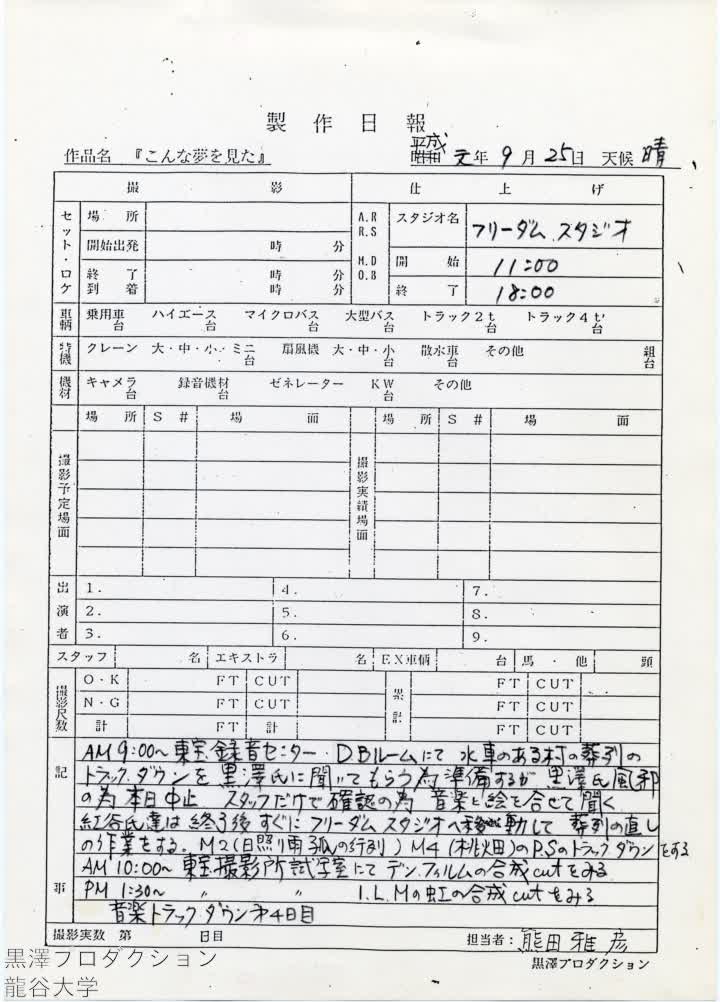 製作日報
作品名 『こんな夢を見た』 平成 昭和 元年 9月 25日 天候 晴
撮影 仕上げ
セット・ロケ 場所 A.R R.S M.D O.B スタジオ名 フリーダム スタジオ
開始出発 時 分 開始 11:00
終了到着 時 分 終了 18:00
車輌 乗用車 台 ハイエース 台 マイクロバス 台 大型バス 台 トラック2t 台 トラック4t 台
特機 クレーン 大・中・小・ミニ 台 扇風機 大・中・小 台 散水車 台 その他 組 台
機材 キャメラ 台 録音機材 台 ゼネレーター KW 台 その他
場所 S# 場面 場所 S# 場面
撮影予定場面 撮影実績場面
出演者 1. 4. 7.
2. 5. 8.
3. 6. 9.
スタッフ 名 エキストラ 名 EX車輌 台 馬・他 頭
撮影尺数 O・K FT CUT 累計 FT CUT
N・G FT CUT FT CUT
計 FT 計 FT CUT
記事
AM 9:00〜 東宝録音センター・DBルームにて 水車のある村の葬列の
トラックダウンを黒澤氏に聞いてもらう為準備するが 黒澤氏風邪
の為本日中止 スタッフだけで確認の為 音楽と絵を合せて聞く
紅谷氏達は終了後すぐにフリーダムスタジオへ移動して 葬列の直し
の作業をする。M2(日照り雨狐の行列) M4(桃畑)のP.Sのトラックダウンをする
AM 10:00〜 東宝撮影所試写室にて デンフィルムの合成cutをみる
PM 1:30〜 〃 〃 I.L.Mの虹の合成cutをみる
音楽トラックダウン才4日目
撮影実数 第 日目 担当者: 熊田雅彦
黒澤プロダクション
黒澤プロダクション
龍谷大学